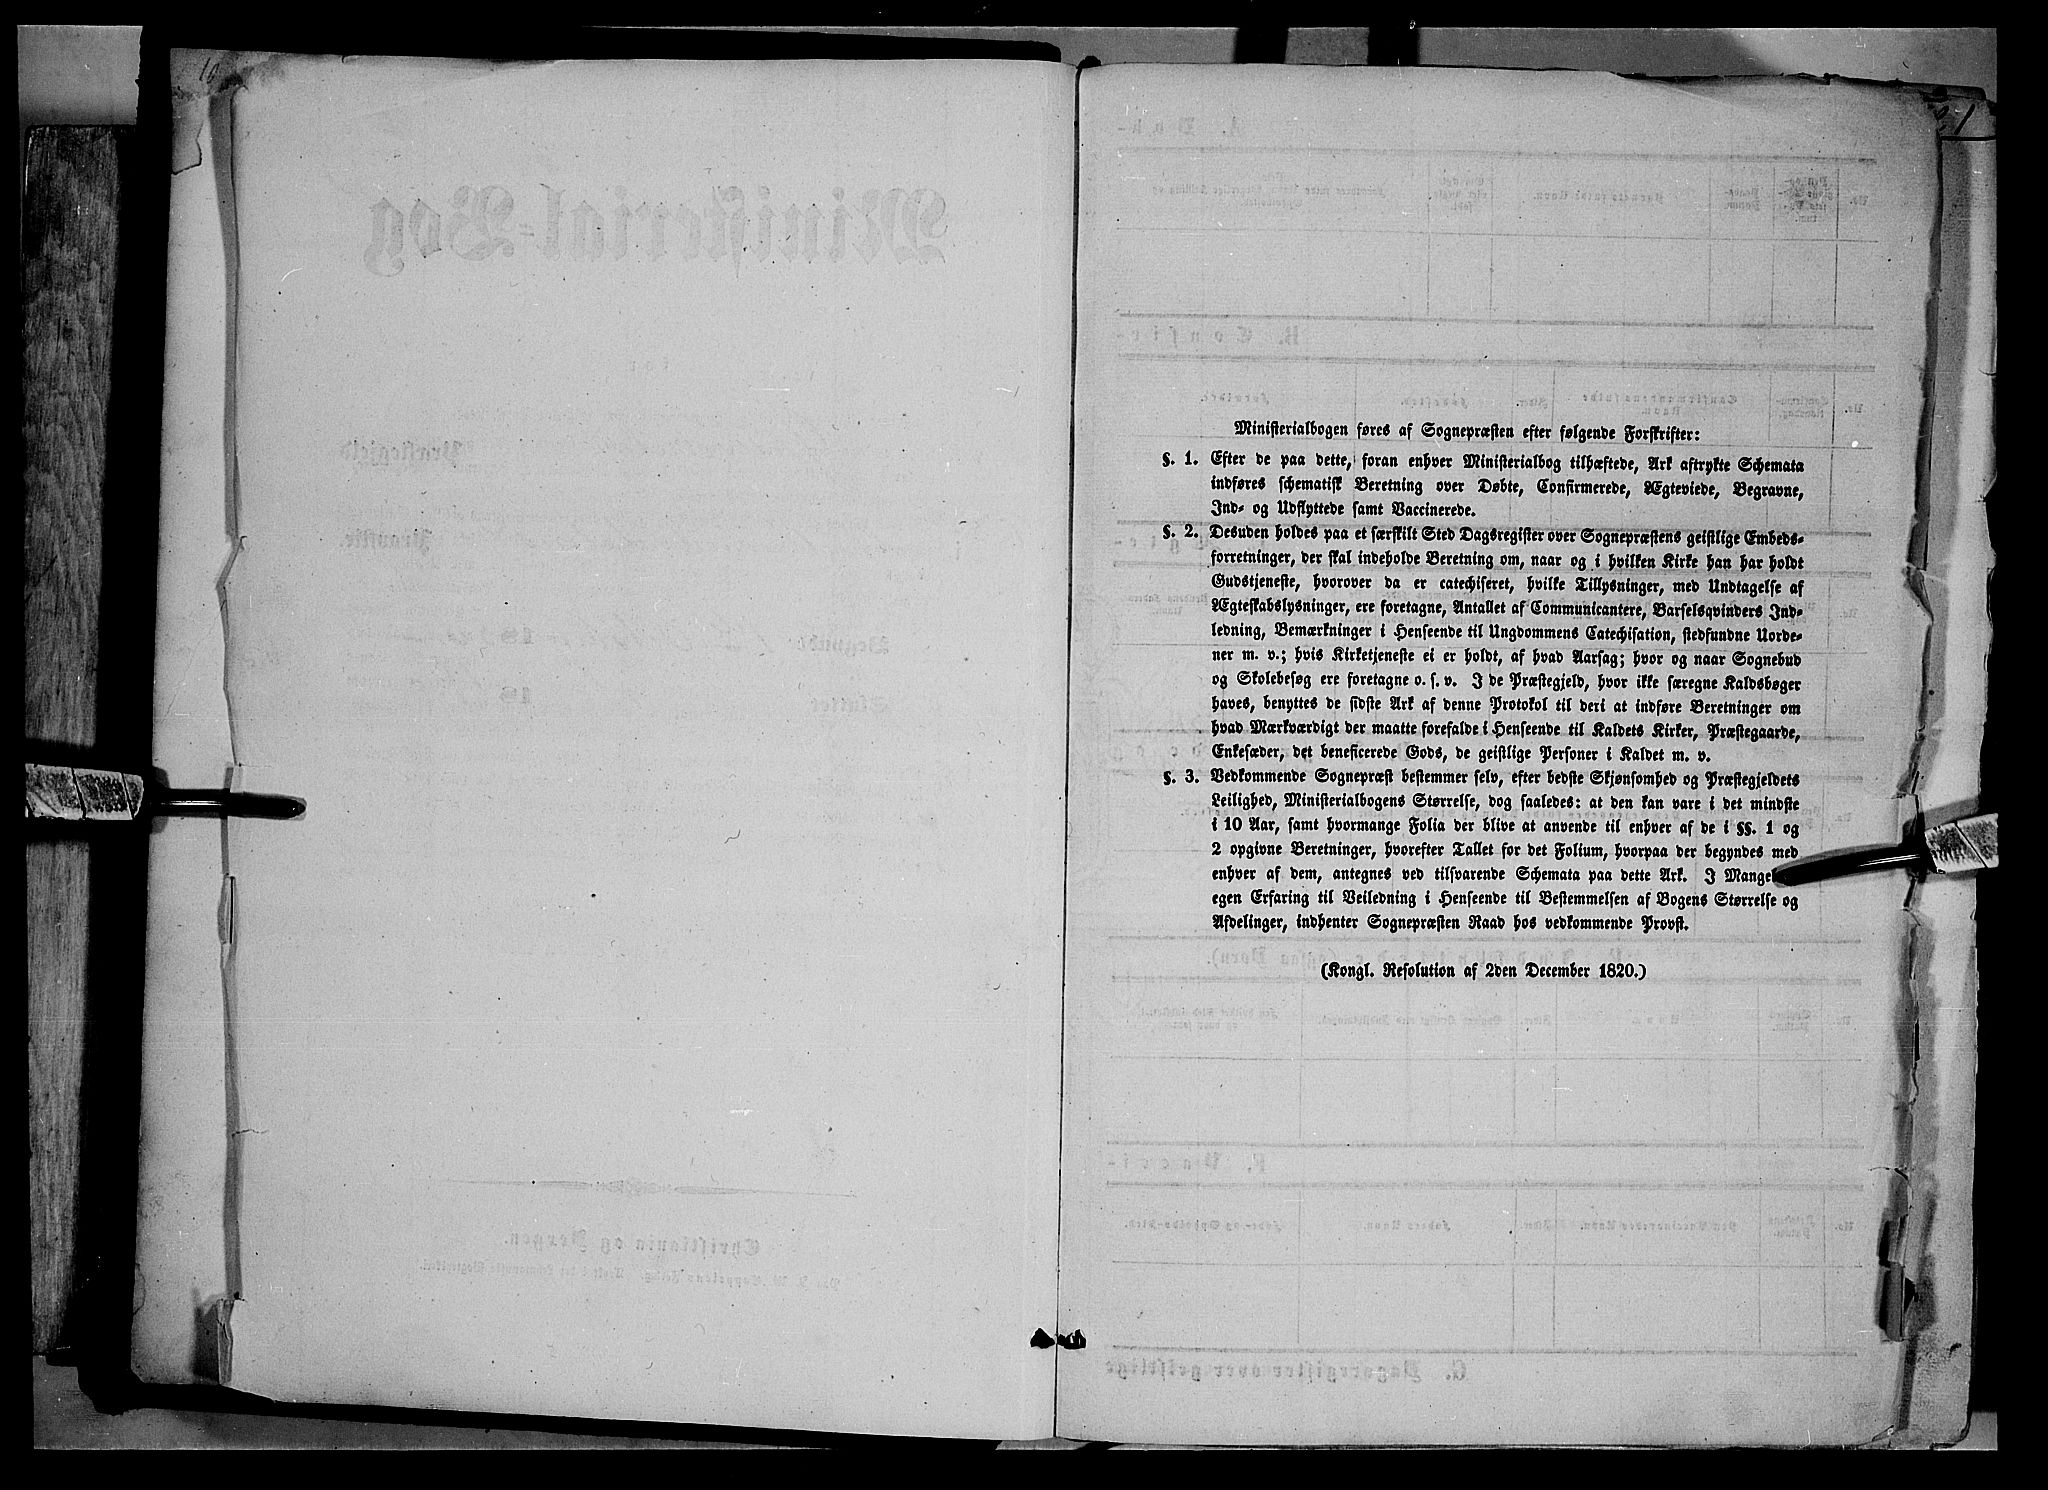 Ministerialbogen føres af Sognepræsten efter følgende Forskrifter:
§. 1. Efter de paa dette, foran enhver Ministerialbog tilhæftede, Ark aftrykte Schemata
indføres schematisk Beretning over Døbte, Confirmerede, Ægteviede, Begravne,
Ind- og Udflyttede samt Vaccinerede.
§. 2. Desuden holdes paa et særskilt Sted Dagsregister over Sognepræstens geistlige Embeds-
forretninger, der skal indeholde Beretning om, naar og i hvilken Kirke han har holdt
Gudstjeneste, hvorover da er catechiseret, hvilke Tillysninger, med Undtagelse af
Ægteskabslysninger, ere foretagne, Antallet af Communicantere, Barselqvinders Ind-
ledning, Bemærkninger i Henseende til Ungdommens Catechisation, stedfundne Uorde-
ner m. v.; hvis Kirketjeneste ei er holdt, af hvad Aarsag; hvor og naar Sognebud
og Skolebesøg ere foretagne o. s. v. I de Præstegjeld, hvor ikke særegne Kaldsbøger
haves, benyttes de sidste Ark af denne Protokol til deri at indføre Beretninger om
hvad Mærkværdigt der maatte forefalde i Henseende til Kaldets Kirker, Præstegaarde,
Enkesæder, det beneficerede Gods, de geistlige Personer i Kaldet m. v.
§. 3. Vedkommende Sognepræst bestemmer selv, efter bedste Skjønsomhed og Præstegjeldets
Leilighed, Ministerialbogens Størrelse, dog saaledes: at den kan vare i det mindste
i 10 Aar, samt hvormange Folia der blive at anvende til enhver af de i §§. 1 og
2 opgivne Beretninger, hvorefter Tallet for det Folium, hvorpaa der begyndes med
enhver af dem, antegnes ved tilsvarende Schemata paa dette Ark. I Mangel
egen Erfaring til Veiledning i Henseende til Bestemmelsen af Bogens Størrelse og
Afdelinger, indhenter Sognepræsten Raad hos vedkommende Provst.
(Kongl. Resolution af 2den December 1820.)